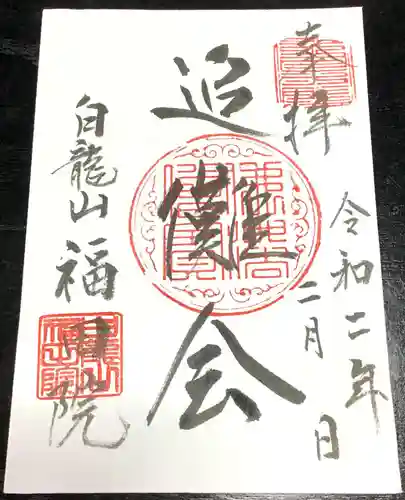 奉拝
令和二年
二月 日
追儺会
白龍山
福田院